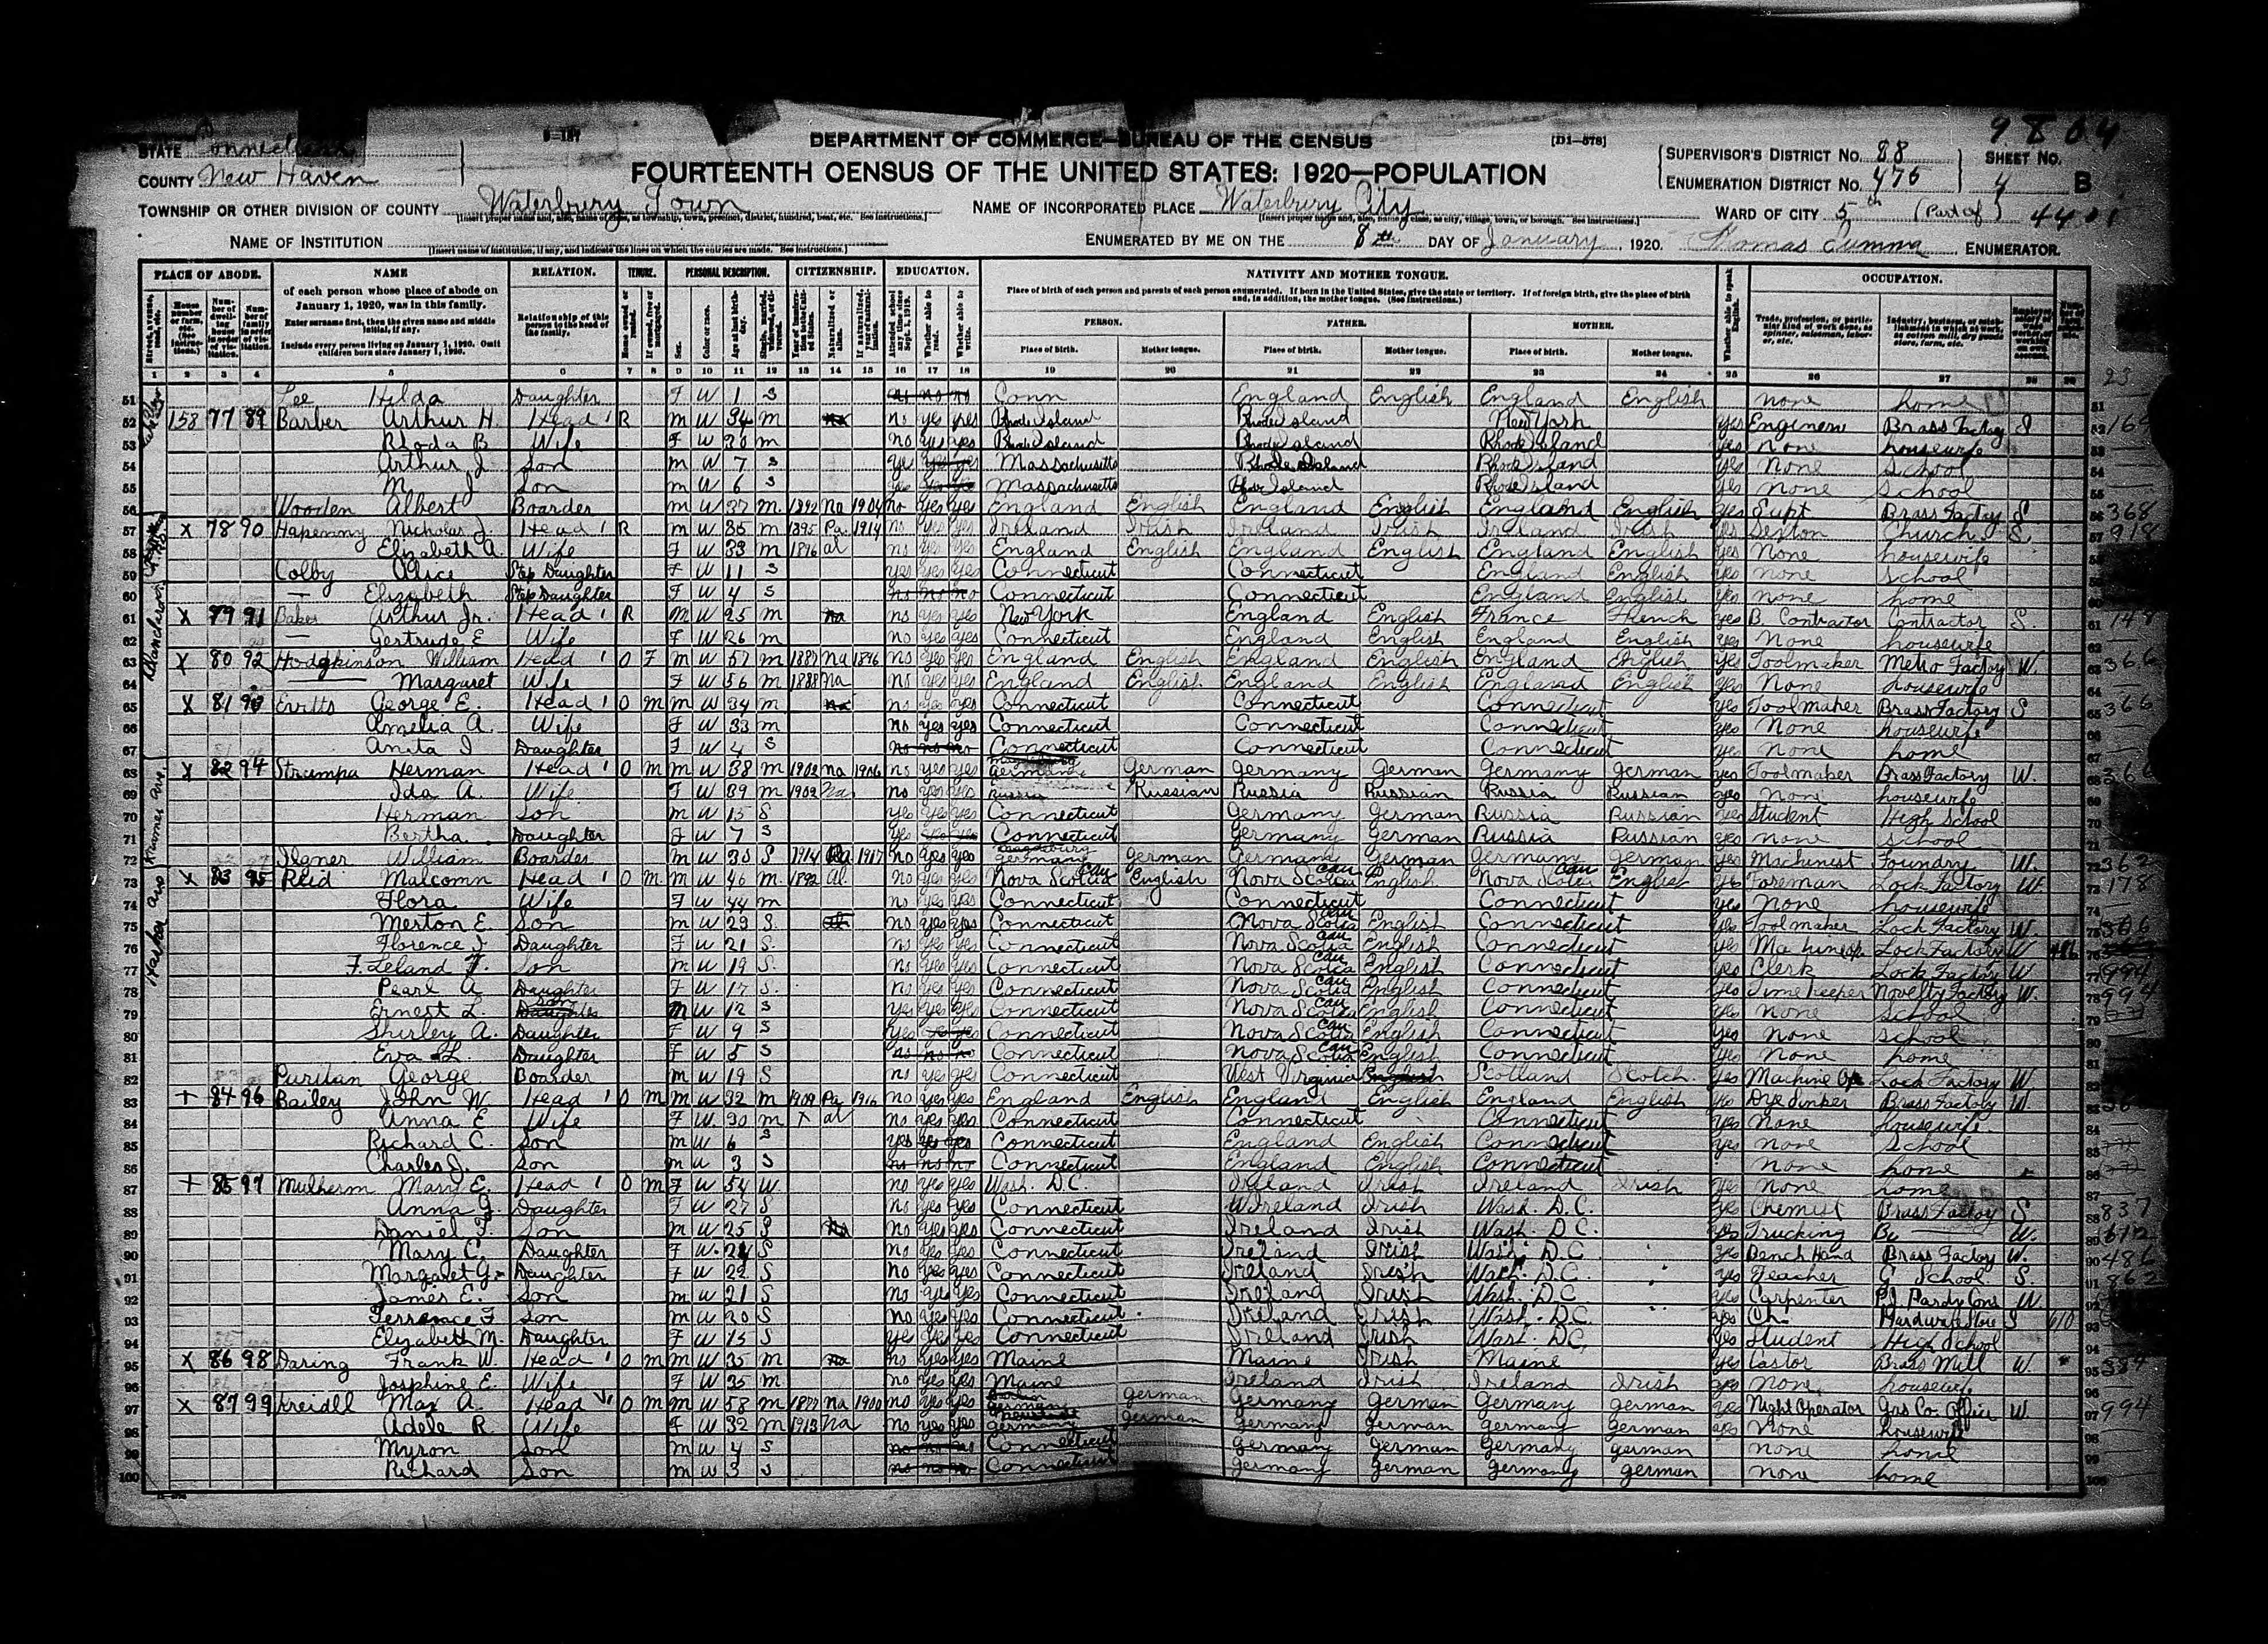 9804
8-187
DEPARTMENT OF COMMERCE—BUREAU OF THE CENSUS
[D1-578]
STATE Connecticut
COUNTY New Haven
FOURTEENTH CENSUS OF THE UNITED STATES: 1920—POPULATION
SUPERVISOR'S DISTRICT No. 88
ENUMERATION DISTRICT No. 476
SHEET No. 4 B
TOWNSHIP OR OTHER DIVISION OF COUNTY Waterbury Town
NAME OF INCORPORATED PLACE Waterbury City
WARD OF CITY 5th (Part of)
NAME OF INSTITUTION
[Insert name of institution, if any, and indicate the lines on which the entries are made. See instructions.]
ENUMERATED BY ME ON THE 8th DAY OF January, 1920. Thomas ENUMERATOR.
PLACE OF ABODE. NAME RELATION. TENURE. PERSONAL DESCRIPTION. CITIZENSHIP. EDUCATION. NATIVITY AND MOTHER TONGUE. OCCUPATION.
of each person whose place of abode on January 1, 1920, was in this family.
Enter surname first, then the given name and middle initial, if any.
Include every person living on January 1, 1920. Omit children born since January 1, 1920.
Relationship of this person to the head of the family.
Place of birth of each person and parents of each person enumerated. If born in the United States, give the state or territory. If of foreign birth, give the place of birth and, in addition, the mother tongue. (See instructions.)
PERSON. FATHER. MOTHER.
Place of birth. Mother tongue. Place of birth. Mother tongue. Place of birth. Mother tongue.
51 Lee Hilda Daughter F W 1 S no no no Conn England English England English none home
52 158 77 89 Barber Arthur H. Head R m W 34 m no yes yes Rhode Island Rhode Island New York yes Engineer Brass Factory S
53 Rhoda B. Wife F W 30 m no yes yes Rhode Island Rhode Island Rhode Island yes None housewife
54 Arthur J. Son m W 7 S yes yes yes Massachusetts Rhode Island Rhode Island yes None School
55 Son m W 6 S Massachusetts Rhode Island Rhode Island yes None School
56 Wooden Albert Boarder m W 37 m 1892 Na 1904 no yes yes England English England English England English yes Supt Brass Factory S
57 X 78 90 Hapenny Nicholas J. Head R m W 35 m 1895 Pa 1914 no yes yes Ireland Irish Ireland Irish Ireland Irish yes Sexton Church S
58 Elizabeth A. Wife F W 33 m 1896 al no yes yes England English England English England English yes None housewife
59 Colby Alice Step Daughter F W 11 S yes yes yes Connecticut Connecticut England English yes none School
60 — Elizabeth Step Daughter F W 4 S no no no Connecticut Connecticut England English yes none home
61 X 79 91 Baker Arthur Jr. Head R m W 25 m na no yes yes New York England English France French yes B. Contractor Contractor S.
62 — Gertrude E Wife F W 26 m no yes yes Connecticut England English England English yes None housewife
63 X 80 92 Hodgkinson William Head O F m W 57 m 1887 na 1896 no yes yes England English England English England English yes Toolmaker Factory W.
64 Margaret Wife F W 56 m 1888 na no yes yes England English England English England English yes None housewife
65 X 81 93 Evitts George E. Head O m m W 34 m na no yes yes Connecticut Connecticut Connecticut yes Toolmaker Brass Factory S
66 Amelia A. Wife F W 33 m no yes yes Connecticut Connecticut Connecticut yes None housewife
67 Anita I Daughter F W 4 S no no no Connecticut Connecticut Connecticut yes None home
68 X 82 94 Strumpu Herman Head O m m W 38 m 1902 na 1906 no yes yes Germany German Germany German Germany German yes Toolmaker Brass Factory W.
69 Ida A. Wife F W 39 m 1902 na no yes yes Russia Russian Russia Russian Russia Russian yes none housewife
70 Herman Son m W 15 S yes yes yes Connecticut Germany German Russia Russian yes Student High School
71 Bertha Daughter F W 7 S yes yes yes Connecticut Germany German Russia Russian yes none School
72 Ilgner William Boarder m W 38 S 1914 Pa 1917 no yes yes Germany German Germany German Germany German yes Machinist Foundry W.
73 X 83 95 Reid Malcomn Head O m m W 46 m 1892 Al no yes yes Nova Scotia Can English Nova Scotia Can English Nova Scotia Can English yes Foreman Lock Factory W
74 Flora Wife F W 44 m no yes yes Connecticut Connecticut Connecticut yes None housewife
75 Merton E. Son m W 23 S no yes yes Connecticut Nova Scotia Can English Connecticut yes Toolmaker Lock Factory W.
76 Florence I Daughter F W 21 S no yes yes Connecticut Nova Scotia Can English Connecticut yes Machine op Lock Factory W
77 F. Leland F. Son m W 19 S no yes yes Connecticut Nova Scotia Can English Connecticut yes Clerk Lock Factory W
78 Pearl A Daughter F W 17 S no yes yes Connecticut Nova Scotia Can English Connecticut yes Time Keeper Novelty Factory W.
79 Ernest L. Son m W 12 S yes yes yes Connecticut Nova Scotia Can English Connecticut yes None School
80 Shirley A. Daughter F W 9 S yes yes yes Connecticut Nova Scotia Can English Connecticut yes None School
81 Eva L. Daughter F W 5 S no no no Connecticut Nova Scotia Can English Connecticut yes None home
82 Puritan George Boarder m W 19 S no yes yes Connecticut West Virginia English Scotland Scotch yes Machine Op Lock Factory W.
83 + 84 96 Bailey John W. Head O m m W 32 m 1909 Pa 1916 no yes yes England English England English England English yes Dye Sinker Brass Factory W.
84 Anna E Wife F W 30 m X al no yes yes Connecticut Connecticut Connecticut yes None housewife
85 Richard C. Son m W 6 S yes yes yes Connecticut England English Connecticut yes none School
86 Charles J. Son m W 3 S no no no Connecticut England English Connecticut none home
87 + 85 97 Mulherm Mary E. Head O m F W 54 W no yes yes Wash. D.C. Ireland Irish Ireland Irish yes None home
88 Anna G. Daughter F W 27 S no yes yes Connecticut Ireland Irish Wash. D.C. yes Chemist Brass Factory S
89 Daniel F. Son m W 25 S na no yes yes Connecticut Ireland Irish Wash. D.C. yes Trucking W.
90 Mary C. Daughter F W 24 S no yes yes Connecticut Ireland Irish Wash. D.C. yes Bench Hand Brass Factory W.
91 Margaret G. Daughter F W 22 S no yes yes Connecticut Ireland Irish Wash. D.C. yes Teacher G School S.
92 James E. Son m W 21 S no yes yes Connecticut Ireland Irish Wash. D.C. yes Carpenter W
93 Terrance F Son m W 20 S no yes yes Connecticut Ireland Irish Wash. D.C. yes Hardware Store
94 Elizabeth M. Daughter F W 15 S yes yes yes Connecticut Ireland Irish Wash. D.C. yes Student High School
95 X 86 98 Daring Frank W. Head O m m W 35 m na no yes yes Maine Maine Irish Maine yes Castor Brass Mill W.
96 Josephine E. Wife F W 35 m no yes yes Maine Ireland Irish Ireland Irish yes None housewife
97 X 87 99 Kreidll Max A. Head O m m W 58 m 1877 na 1900 no yes yes Berlin Germany German Germany German Germany German yes Night Operator Gas Co. Office W.
98 Adele R. Wife F W 32 m 1913 na no yes yes Germany German Germany German Germany German yes None housewife
99 Myron Son m W 4 S no no no Connecticut Germany German Germany German none home
100 Richard Son m W 3 S no no no Connecticut Germany German Germany German none home